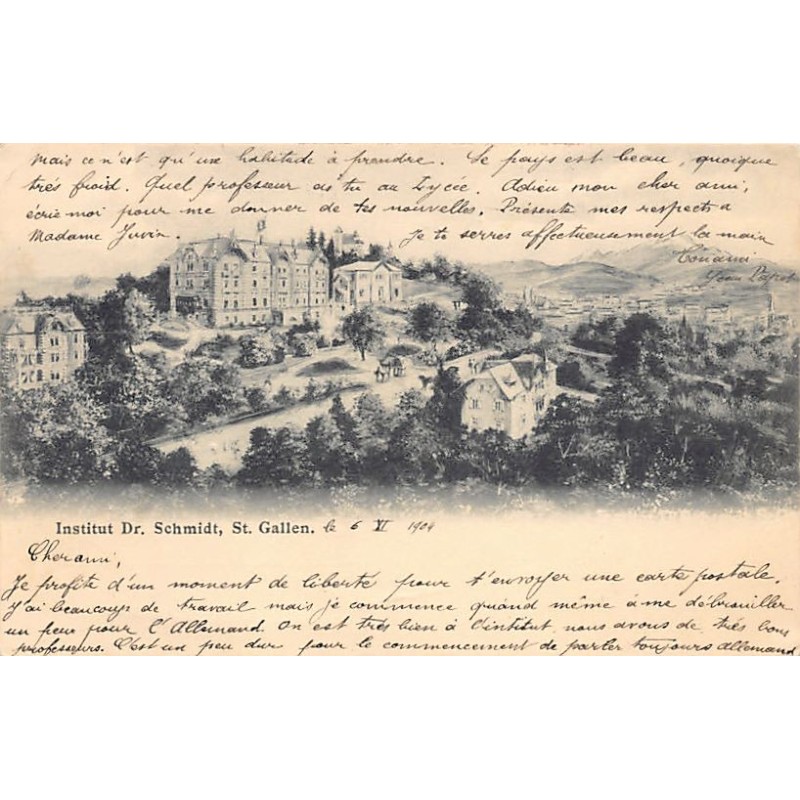 Mais ce n'est qu'une habitude à prendre. Le pays est beau, quoique
très froid. Quel professeur as tu au Lycée. Adieu mon cher ami,
écris moi pour me donner de tes nouvelles. Présente mes respects à
Madame Juvin. Je te serres affectueusement la main
Ton ami
Jean
Institut Dr. Schmidt, St. Gallen. le 6 XI 1904
Cher ami,
Je profite d'un moment de liberté pour t'envoyer une carte postale.
J'ai beaucoup de travail mais je commence quand même à me débrouiller
un peu pour l'Allemand. On est très bien à l'institut, nous avons de très bons
professeurs. C'est un peu dur pour le commencement de parler toujours allemand